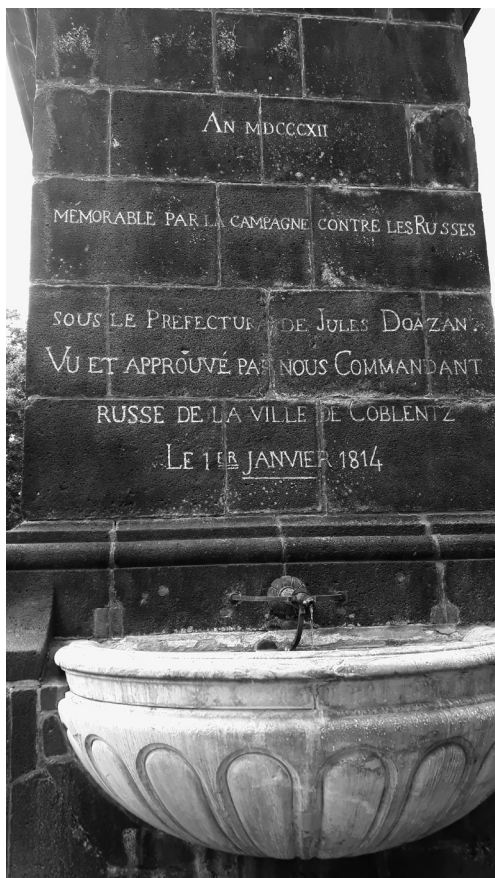 AN MDCCCXII
MEMORABLE PAR LA CAMPAGNE CONTRE LES RUSSES
SOUS LE PREFECTURA DE JULES DOAZAN.
VU ET APPROUVÉ PAR NOUS COMMANDANT
RUSSE DE LA VILLE DE COBLENTZ
LE 1ER JANVIER 1814